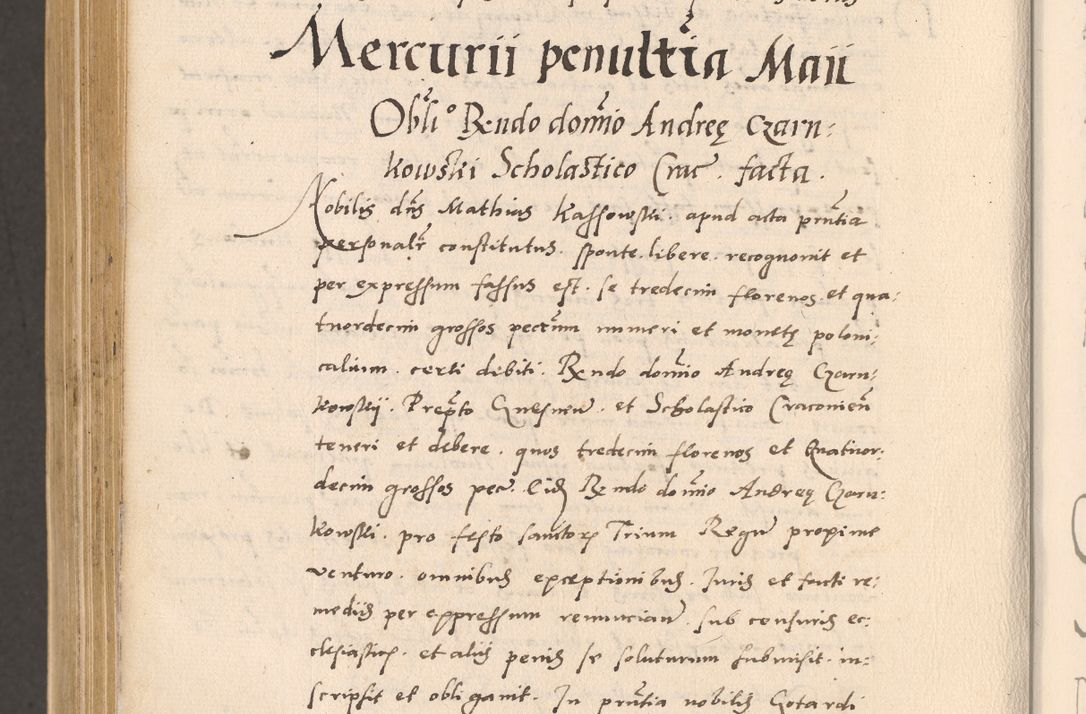 Mercurii penultia Maii
Obli° Rendo domio Andreę Czarn:
kowski Scholastico Crac. facta.
Nobilis dns Mathias Kassowski. apud acta prntia
personalr constitutus. sponte. libere. recognovit et
per expressum fassus est. se tredecim florenos. et qua:
tuordecim grossos pecum numeri et monetę poloni:
calium. certi debiti. Rendo domio Andreę Czarn:
kowskij. Prepto Gnesnen. et Scholastico Craconien
teneri et debere. quos tredecim florenos et Quatuor:
decim grossos pec. Eid Rendo domio Andreę Czarn:
kowski. pro festo sanctor Trium Regu proxime
venturo. omnibus exceptionibus. Juris et facti re:
mediis per expressum renuncian. sub censuris ec:
clesiastic. et aliis penis se soluturum submisit. in:
scripsit et obligavit. In prntia nobilis Gotardi